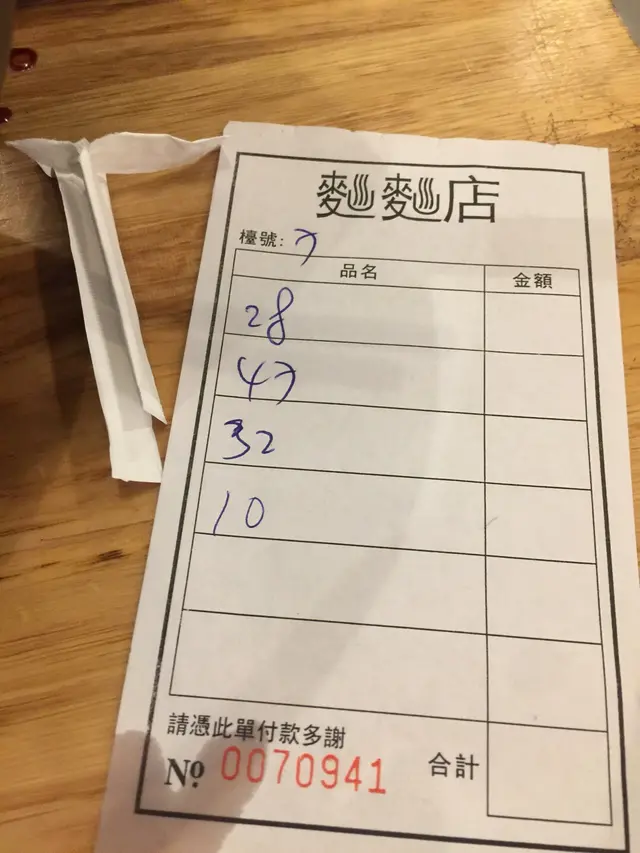 麵麵店
檯號: 7
品名 金額
28
47
32
10
請憑此單付款多謝
合計
Nº 0070941